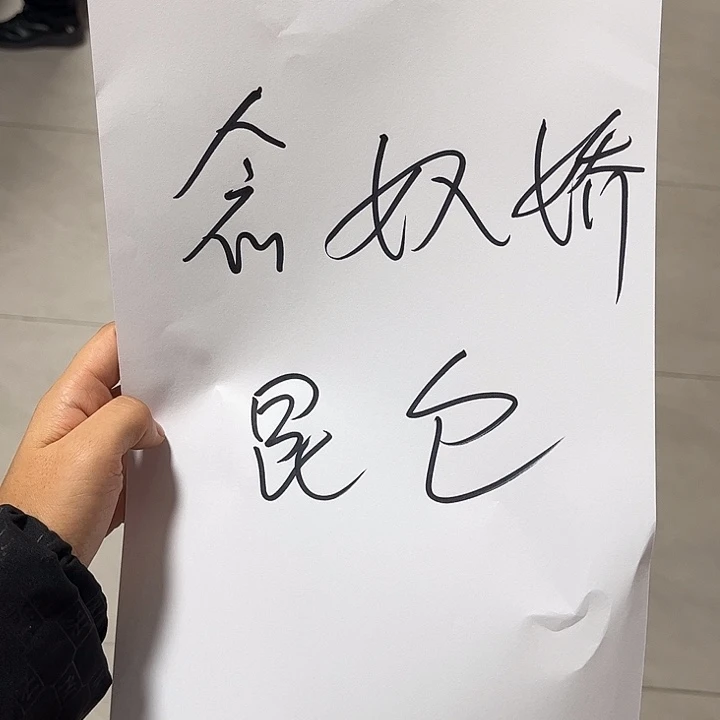 念奴娇
昆仑